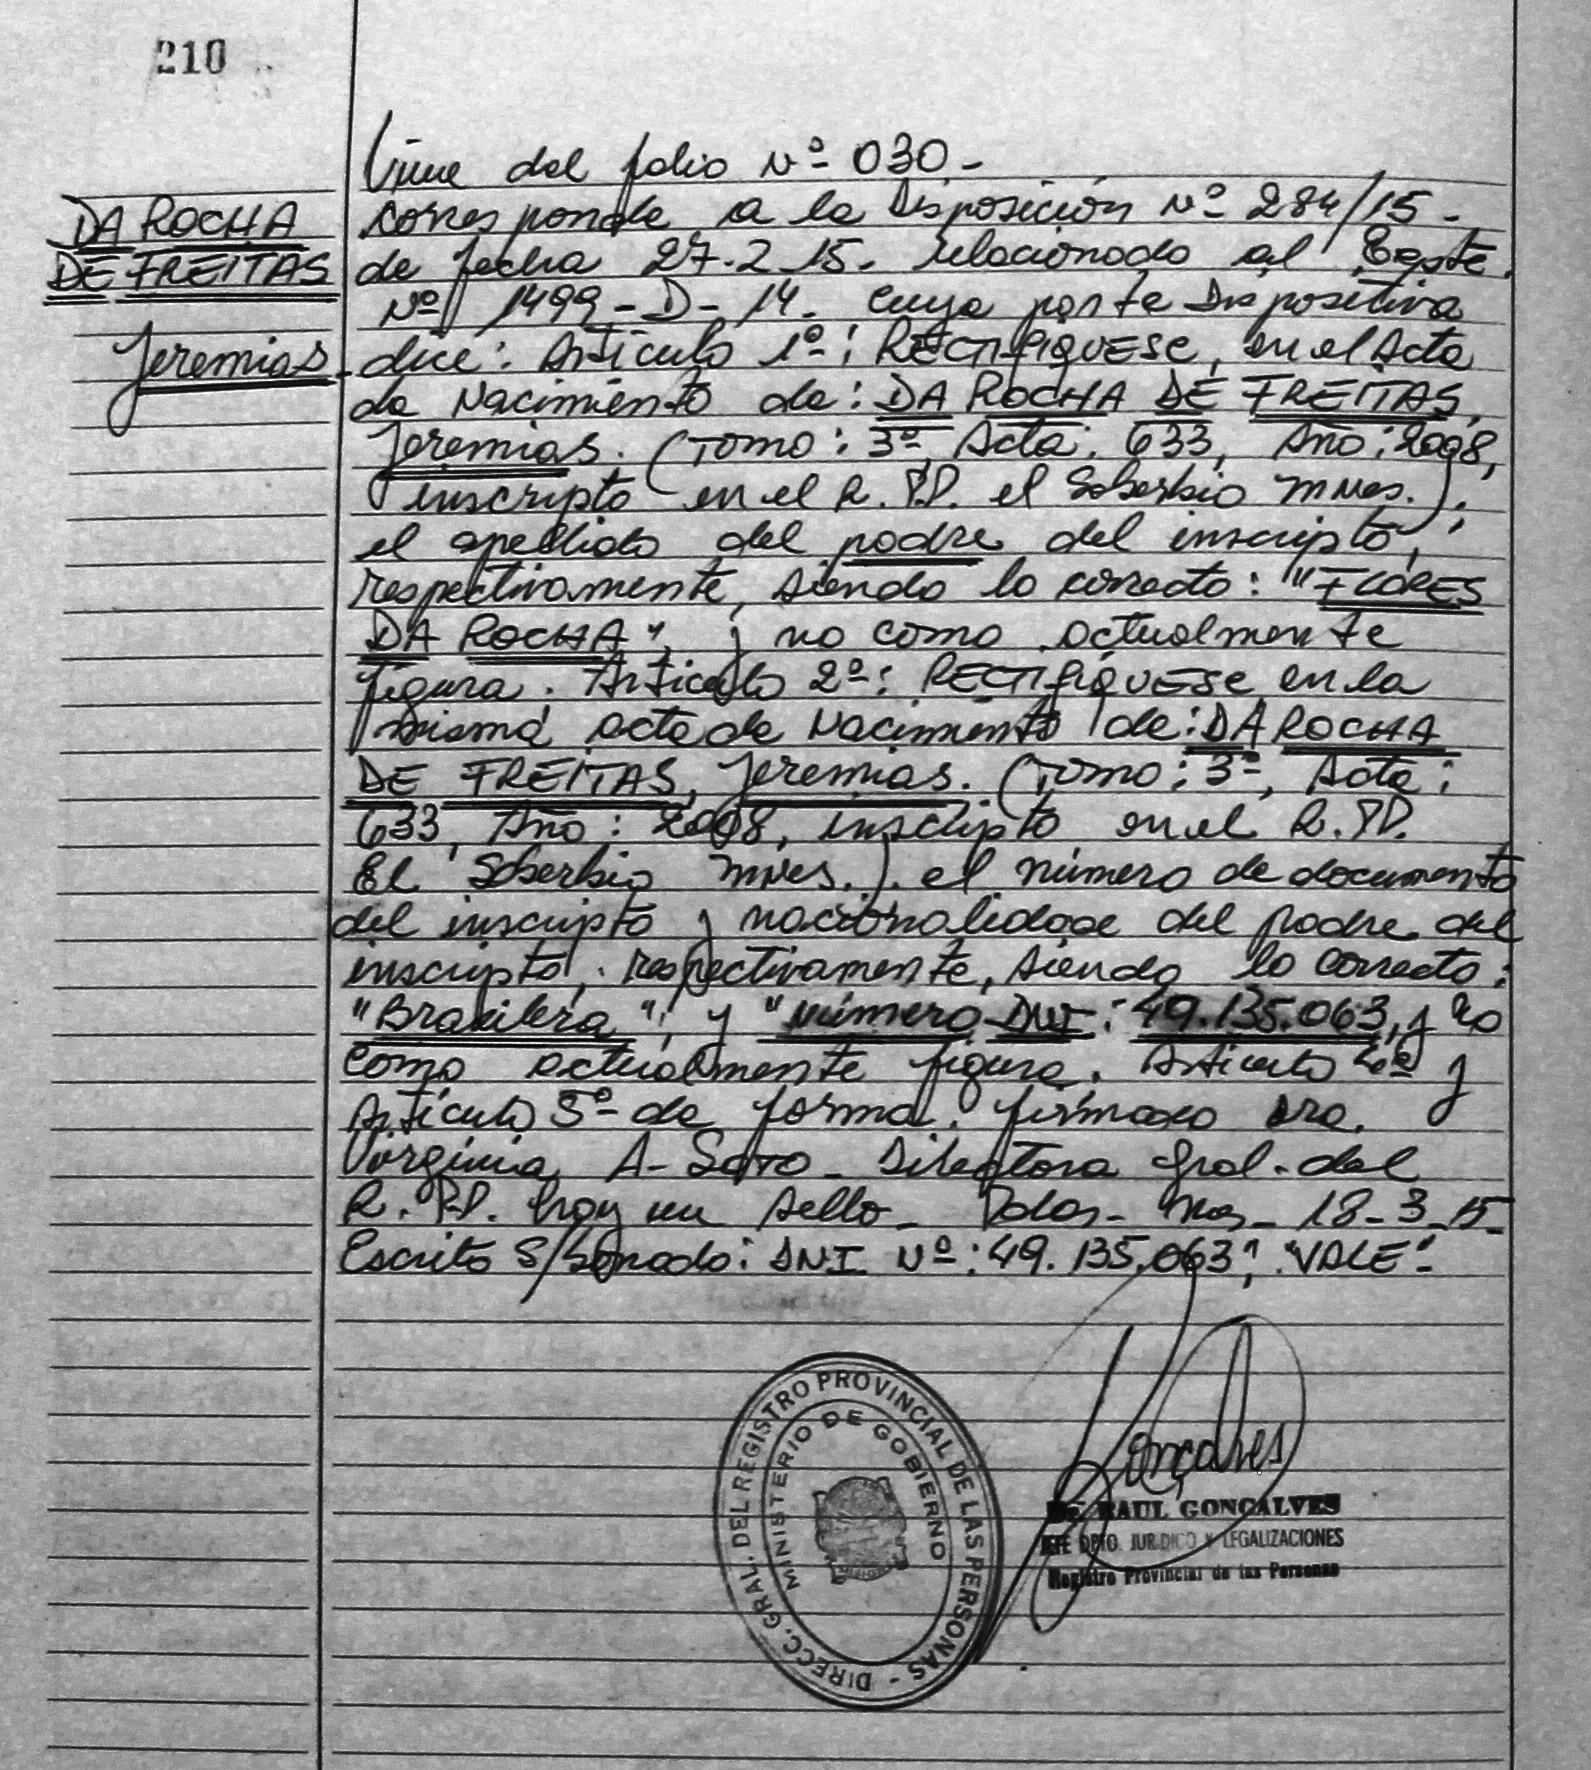 210
Viene del folio Nº 030-
DA ROCHA
DE FREITAS
Jeremias
corresponde a la Disposición Nº 284/15-
de fecha 27.2.15. relacionado al Expte.
Nº 1499-D-14. cuya parte Dispositiva
dice: Artículo 1º: RECTIFIQUESE, en el Acta
de Nacimiento de: DA ROCHA DE FREITAS,
Jeremias. (Tomo: 3º, Acta: 633, Año: 2008,
inscripto en el R.P.P. el Soberbio Mnes.);
el apellido del padre del inscripto,
respectivamente, siendo lo correcto: "FLORES
DA ROCHA", y no como actualmente
figura. Artículo 2º: RECTIFIQUESE en la
misma acta de Nacimiento de: DA ROCHA
DE FREITAS, Jeremias. (Tomo: 3º, Acta:
633, Año: 2008, inscripto en el R.P.P.
El Soberbio Mnes.). el número de documento
del inscripto y nacionalidad del padre del
inscripto, respectivamente, siendo lo correcto:
"Brasilera", y "número DNI: 49.135.063, y no
como actualmente figura. Artículo 4º y
Artículo 5º de forma. firmado Dra.
Virginia A- Soto- Directora Gral. del
R.P.P. hay un sello- Pdas- Mnes- 18-3-15-
Escrito S/borrado: DNI Nº: 49.135.063", "VALE"-
DIRECC. GRAL. DEL REGISTRO PROVINCIAL DE LAS PERSONAS -
MINISTERIO DE GOBIERNO
Gonçalves
RAUL GONCALVES
JEFE DPTO. JURIDICO Y LEGALIZACIONES
Registro Provincial de las Personas